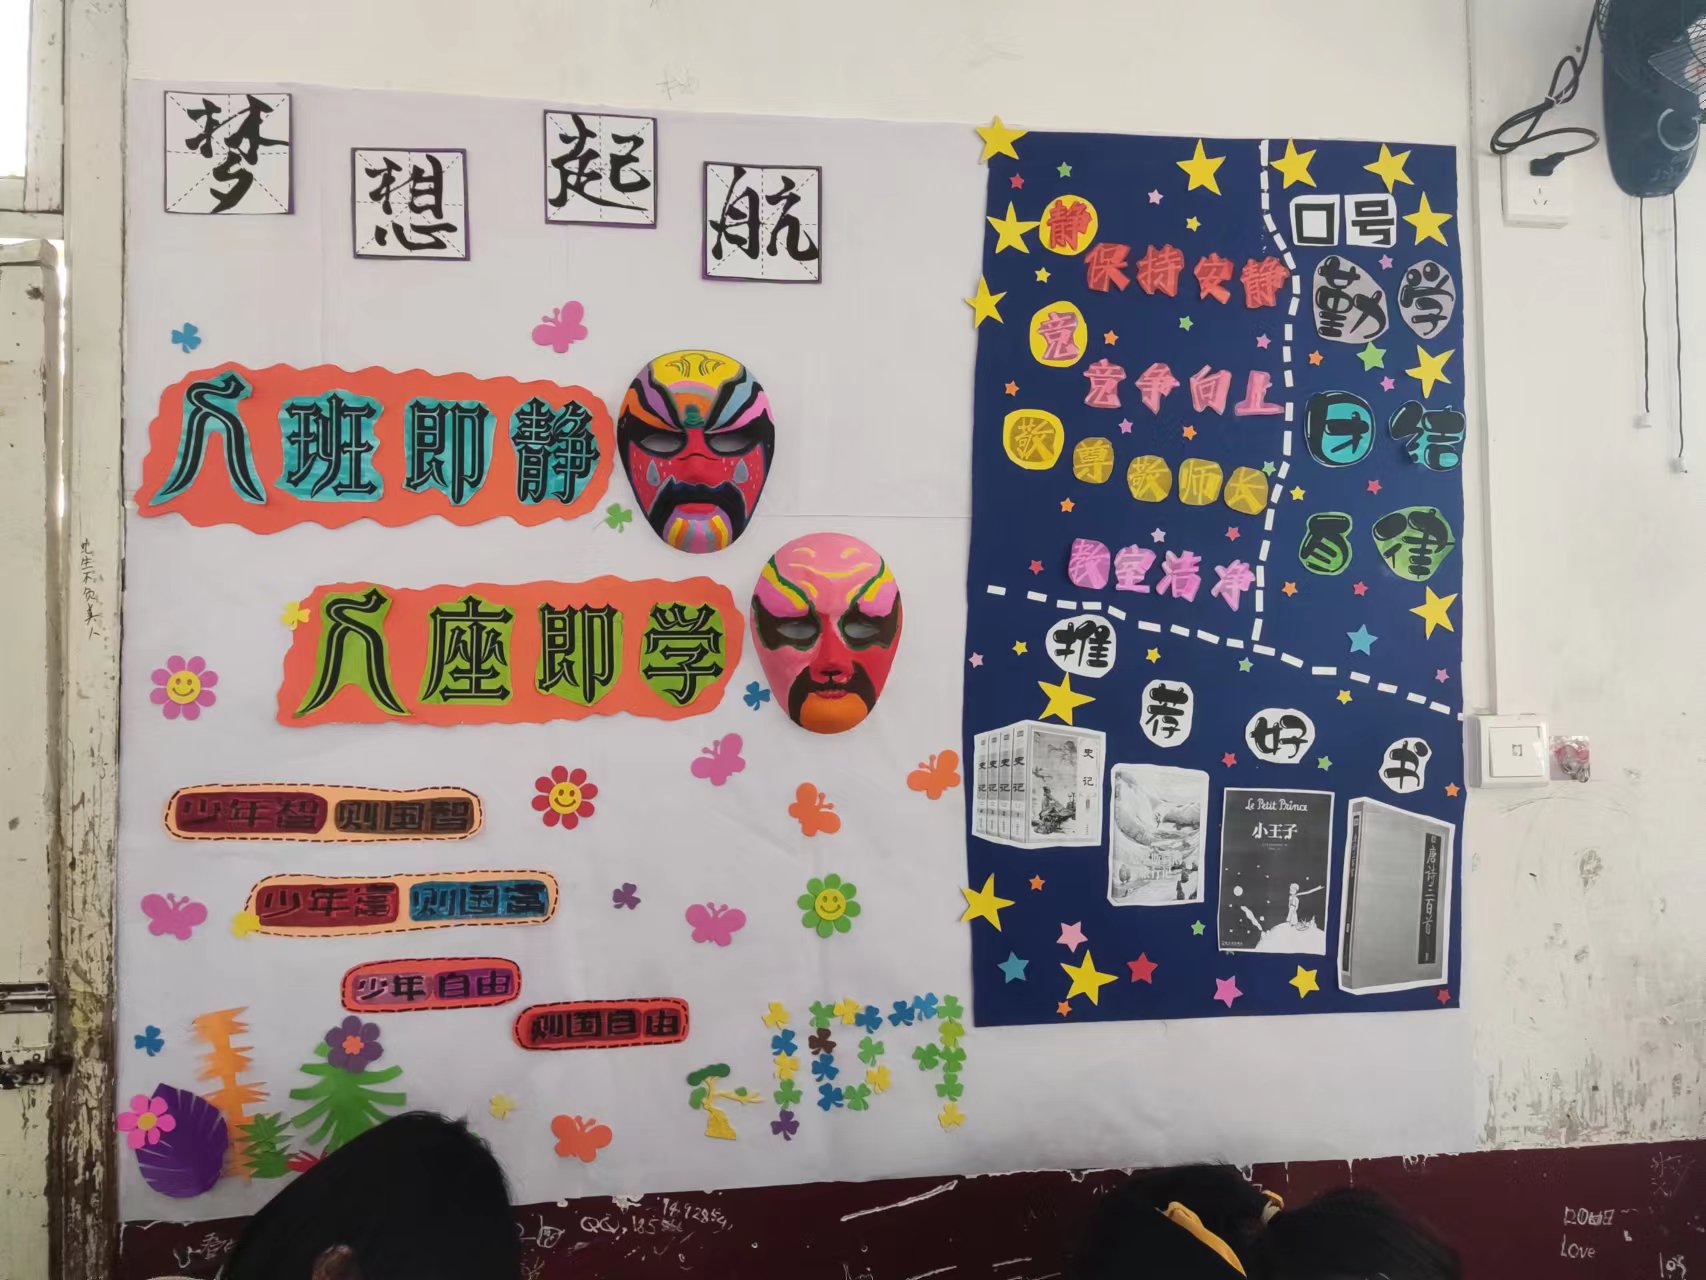 梦想起航
入班即静
入座即学
少年智 则国智
少年富 则国富
少年自由
则国自由
187
静
保持安静
竞
竞争向上
敬
尊敬师长
教室洁净
口号
勤学
团结
自律
推荐好书
史记
史记
史记
史记
史 记
Le Petit Prince
小王子
唐诗三百首
此生不负美人
QQ
Love